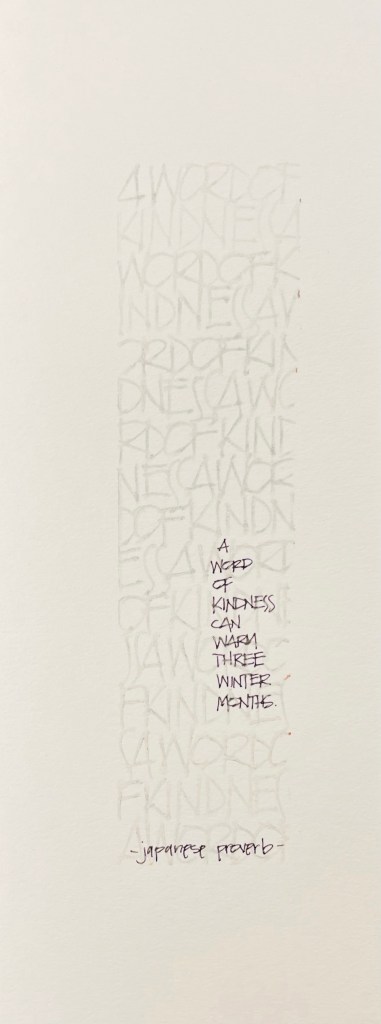 A WORD OF
KINDNESS A
WORD OF K
INDNESS A W
ORD OF KIN
DNESS A WO
RD OF KIND
NESS A WOR
D OF KINDN
ESS A WORD
OF KI
S A W
F KINDNES
S A WORD O
F KINDNES
A WORD OF
A
WORD
OF
KINDNESS
CAN
WARM
THREE
WINTER
MONTHS.
-japanese proverb-